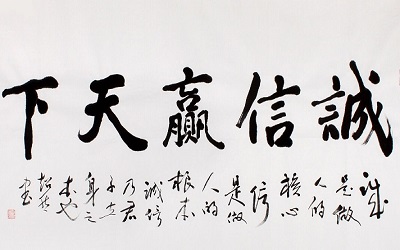 誠信贏天下
诚
是做
人的
核心
信
是做
人的
根本
诚信
乃君
子立
身之
本也
书